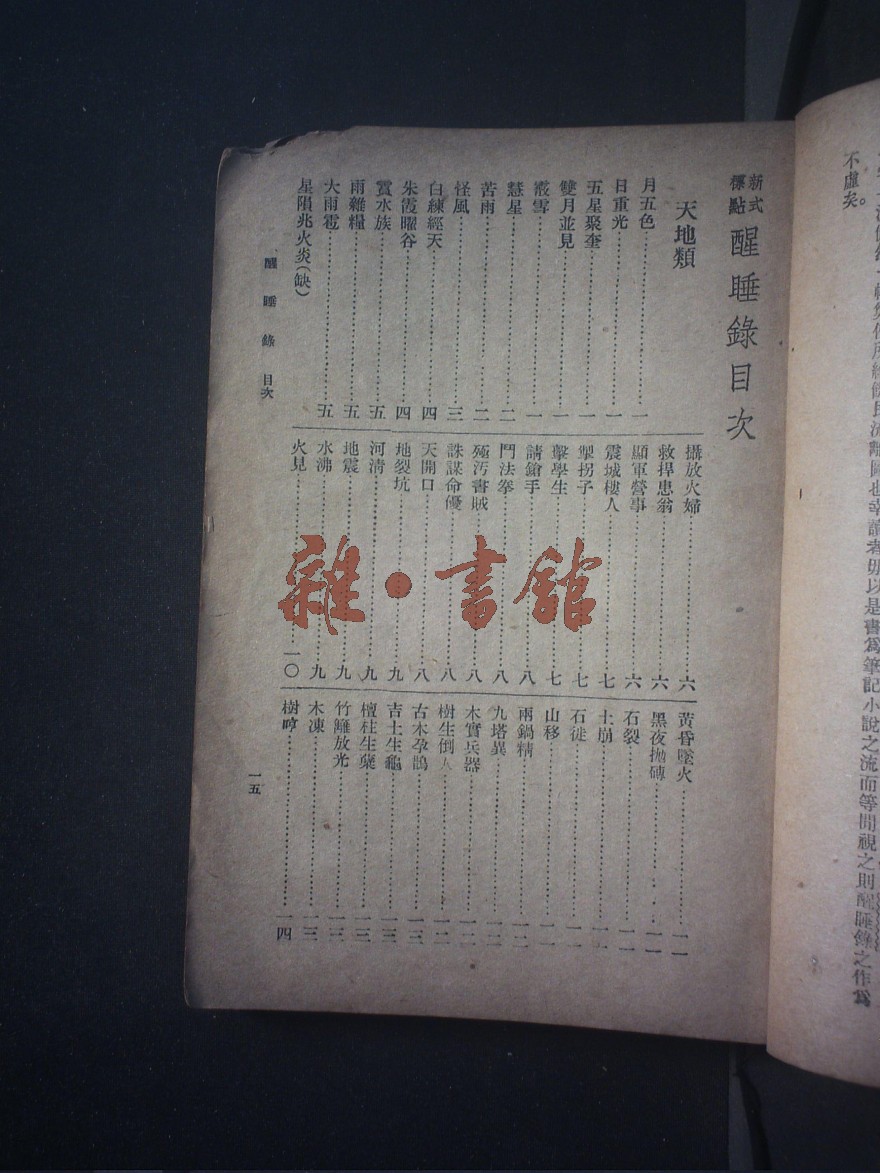 不虛矣。
新式標點 醒睡錄目次
天地類
月五色……一
日重光……一
五星聚奎……一
雙月並見……一
霰雪……一
慧星……二
苦雨……二
怪風……三
白練經天……四
朱霞曜谷……四
雨雜糧……五
大雨雹……五
星隕兆火炎(缺)
攝放火婦……六
救捍患翁……六
顯軍營事……六
震城樓人……七
掣拐子……七
擊學生……七
請鎗手……八
鬥法拳……八
殛汚書賊……八
誅謀命優……八
天開口……八
地裂坑……九
河清……九
地震……九
水沸……九
火見……一〇
黃昏墜火……一一
黑夜拋磚……一一
石裂……一一
土崩……一一
石徙……一一
山移……一一
兩鍋精……一二
九塔異……一二
木實兵器……一二
樹生倒人……一二
古木孕鵲……一三
吉土生龜……一三
檀柱生蘗……一三
竹籬放光……一三
木凍……一三
樹哼……一四
醒睡錄 目次
一五
雜·書館